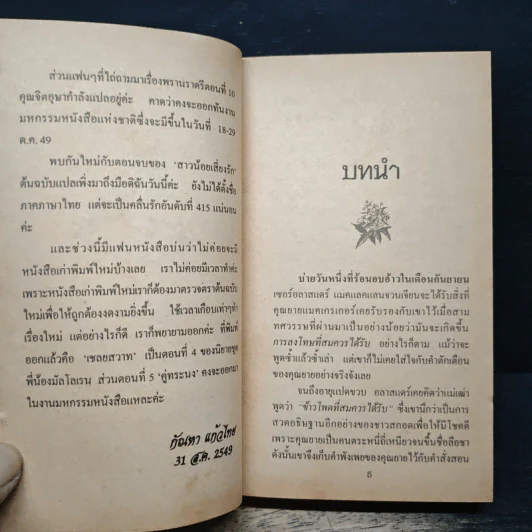 ส่วนแฟนๆที่ไถ่ถามมาเรื่องพรานราตรีตอนที่ 10
คุณจิตอุษากำลังแปลอยู่ค่ะ คาดว่าคงจะออกทันงาน
มหกรรมหนังสือแห่งชาติซึ่งจะมีขึ้นในวันที่ 18-29
ต.ค. 49
พบกันใหม่กับตอนจบของ 'สาวน้อยเสี่ยงรัก'
ต้นฉบับแปลเพิ่งมาถึงมือดิฉันวันนี้ค่ะ ยังไม่ได้ตั้งชื่อ
ภาคภาษาไทย แต่จะเป็นคลื่นรักอันดับที่ 415 แน่นอน
ค่ะ
และช่วงนี้มีแฟนหนังสือบ่นว่าไม่ค่อยจะมี
หนังสือเก่าพิมพ์ใหม่บ้างเลย เราไม่ค่อยมีเวลาทำค่ะ
เพราะหนังสือพิมพ์ใหม่เราก็ต้องเอามาตรวจตราต้นฉบับ
ใหม่เพื่อให้ถูกต้องงดงามยิ่งขึ้น ใช้เวลาเกือบเท่าๆทำ
เรื่องใหม่ แต่อย่างไรก็ดี เราก็พยายามออกค่ะ ที่พิมพ์
ออกแล้วคือ 'เชลยสวาท' เป็นตอนที่ 4 ของนิยายชุด
พี่น้องมัลโลเรน ส่วนตอนที่ 5 'คู่ทระนง' คงจะออกมา
ในงานมหกรรมหนังสือแหละค่ะ
กัณหา แก้วไทย
31 ส.ค. 2549
บทนำ
บ่ายวันหนึ่งที่ร้อนอบอ้าวในเดือนกันยายน
เซอร์อลาสแตร์ แมคแลคแลนจวนเจียนจะได้รับสิ่งที่
คุณยายแมคเกรเกอร์เคยรับรองกับเขาไว้เมื่อสาม
ทศวรรษที่ผ่านมาเป็นอย่างน้อยว่ามันจะเกิดขึ้น
การลงโทษที่สมควรได้รับ อย่างไรก็ตาม แม้ว่าจะ
พูดซ้ำแล้วซ้ำเล่า แต่เขาก็ไม่เคยใส่ใจกับคำตักเตือน
ของคุณยายอย่างจริงจังเลย
จนถึงอายุแปดขวบ อลาสแตร์เคยคิดว่าแม่เฒ่า
พูดว่า "ข้าวโพดที่สมควรได้รับ" ซึ่งเขานึกว่าเป็นการ
สวดอธิษฐานอีกอย่างของชาวสกอตเพื่อให้มีโชคดี
เพราะคุณยายเป็นคนตระหนี่ถี่เหนียวจนขึ้นชื่อลือชา
ดังนั้นเขาจึงเก็บคำพังเพยของคุณยายไว้กับคำสั่งสอน
5